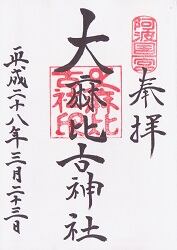 阿波國一宮
奉拝
大麻比古神社
大麻比古神社印
平成二十八年三月二十三日